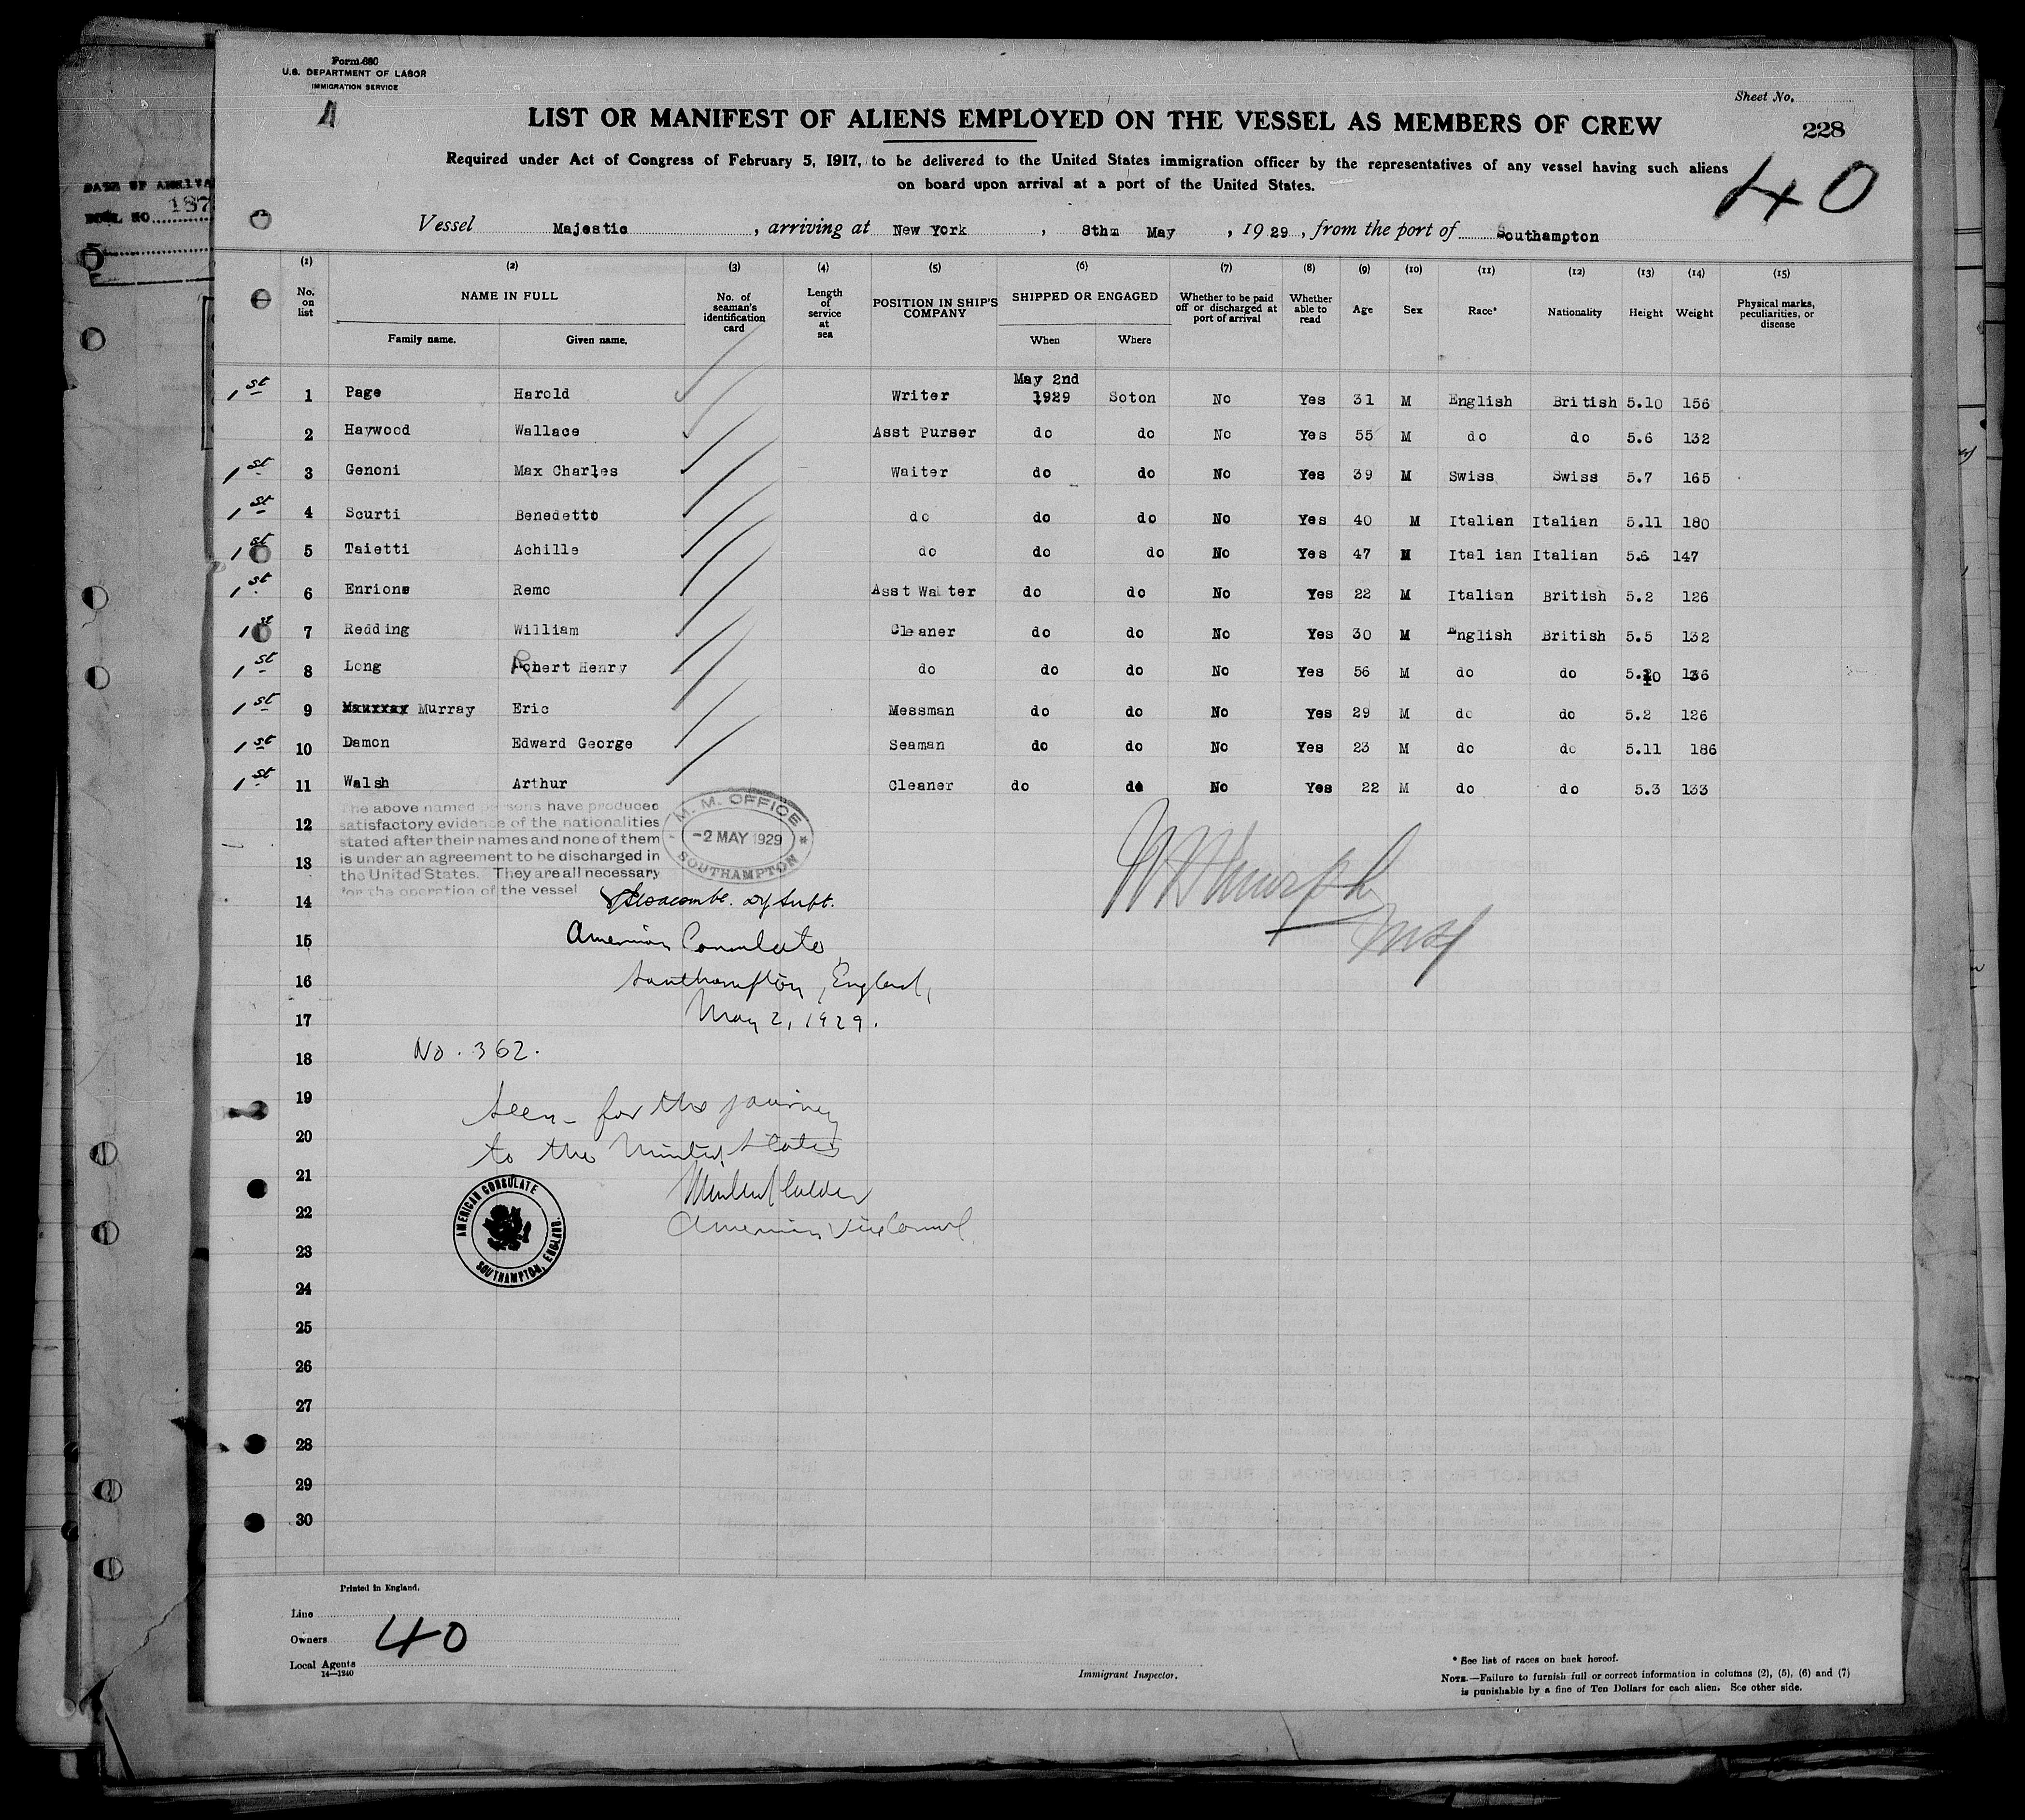 Form 680
U.S. DEPARTMENT OF LABOR
IMMIGRATION SERVICE
Sheet No.
LIST OR MANIFEST OF ALIENS EMPLOYED ON THE VESSEL AS MEMBERS OF CREW
228
Required under Act of Congress of February 5, 1917, to be delivered to the United States immigration officer by the representatives of any vessel having such aliens
on board upon arrival at a port of the United States.
40
187
Vessel Majestic, arriving at New York, 8th May, 1929, from the port of Southampton
(1) (2) (3) (4) (5) (6) (7) (8) (9) (10) (11) (12) (13) (14) (15)
No. on list NAME IN FULL Family name. Given name. No. of seaman's identification card Length of service at sea POSITION IN SHIP'S COMPANY SHIPPED OR ENGAGED When Where Whether to be paid off or discharged at port of arrival Whether able to read Age Sex Race* Nationality Height Weight Physical marks, peculiarities, or disease
1st 1 Page Harold Writer May 2nd 1929 Soton No Yes 31 M English British 5.10 156
2 Haywood Wallace Asst Purser do do No Yes 55 M do do 5.6 132
1st 3 Genoni Max Charles Waiter do do No Yes 39 M Swiss Swiss 5.7 165
1st 4 Scurti Benedetto do do do No Yes 40 M Italian Italian 5.11 180
1st 5 Taietti Achille do do do No Yes 47 M Ital ian Italian 5.6 147
1st 6 Enrione Remo Asst Waiter do do No Yes 22 M Italian British 5.2 126
1st 7 Redding William Cleaner do do No Yes 30 M English British 5.5 132
1st 8 Long Robert Henry do do do No Yes 56 M do do 5.10 136
1st 9 Murray Eric Messman do do No Yes 29 M do do 5.2 126
1st 10 Damon Edward George Seaman do do No Yes 23 M do do 5.11 186
1st 11 Walsh Arthur Cleaner do do No Yes 22 M do do 5.3 133
The above named persons have produced
satisfactory evidence of the nationalities
stated after their names and none of them
is under an agreement to be discharged in
the United States. They are all necessary
for the operation of the vessel
M. M. OFFICE
-2 MAY 1929
SOUTHAMPTON
12
13
14
15 American Consulate
16 Southampton, England,
17 May 2, 1929.
18 No. 362.
19 Seen for the journey
20 to the United States
21
22 American Vice Consul
AMERICAN CONSULATE
SOUTHAMPTON, ENGLAND.
23
24
25
26
27
28
29
30
Printed in England.
Line
Owners
40
Local Agents
14—1240
Immigrant Inspector.
* See list of races on back hereof.
NOTE.—Failure to furnish full or correct information in columns (2), (5), (6) and (7)
is punishable by a fine of Ten Dollars for each alien. See other side.